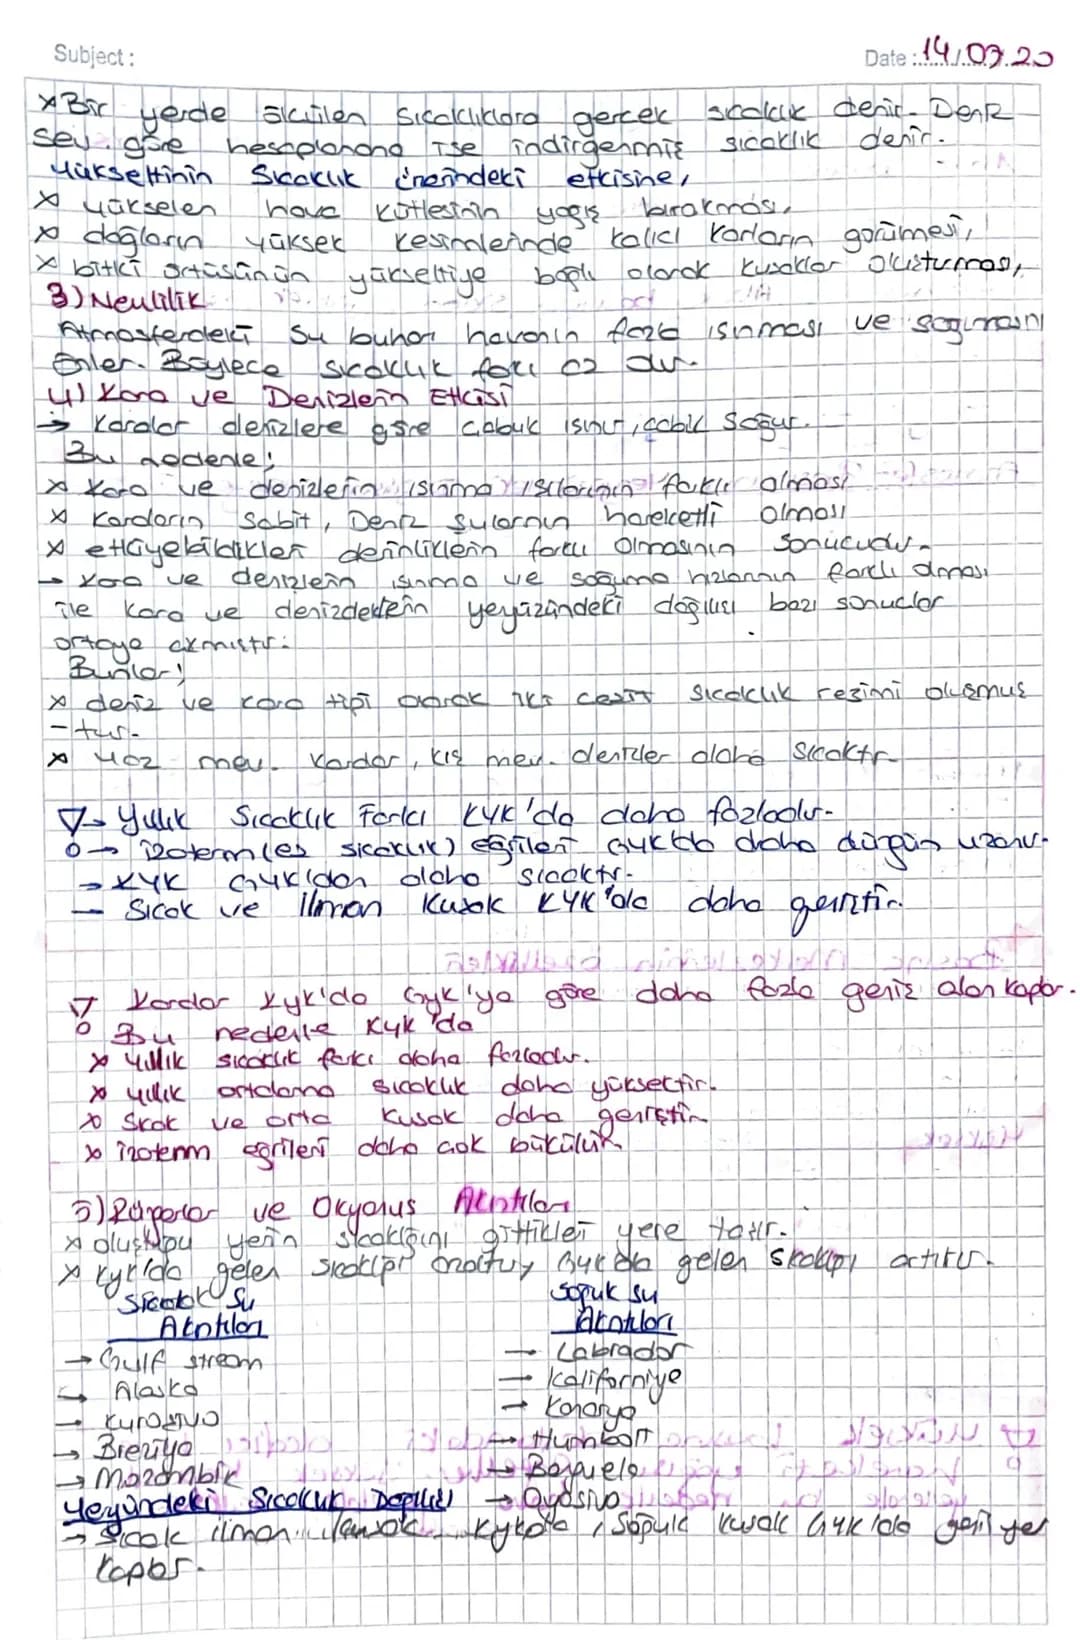 Subject :
Date : 14.03.20
x Bir yerde ölçülen sıcaklıklara gerçek sıcaklık denir. Deniz
sev. göre hesaplanana ise indirgenmiş sıcaklık denir.
Yükseltinin Sıcaklık üzerindeki etkisine,
x yükselen hava kütlesinin yağış bırakması,
x dağların yüksek kesimlerinde kalıcı karların görümesi,
x bitki örtüsünün yükseltiye bağlı olarak kuşaklar oluşturması,
3) Nemlilik
Atmosferdeki su buharı havanın fazla ısınması ve soğumasını
önler. Böylece sıcaklık farkı az olur.
4) Kara ve Denizlerin Etkisi
→ Karalar denizlere göre çabuk ısınır, çabuk soğur.
Bu nedenle;
x Kara ve denizlerin ısınma ısılarının farklı olması
x Karaların sabit, Deniz sularının hareketli olması
x etkiyebildikleri derinliklerin farklı olmasının sonucudur.
→ Kara ve denizlerin ısınma ve soğuma hızlarının farklı olması
ile kara ve denizlerin yeryüzündeki dağılışı bazı sonuçlar
ortaya çıkmıştır.
Bunlar;
x deniz ve kara tipi olarak iki çeşit sıcaklık rejimi oluşmuş
-tur.
x Yaz mev. karalar, kış mev. denizler daha sıcaktır.
→ Yıllık Sıcaklık Farkı KYK'da daha fazladır.
→ İzoterm (eş sıcaklık) eğrileri GYK'da daha düzgün uzanır.
→ KYK GYK'dan daha sıcaktır.
— Sıcak ve ılıman Kuşak KYK'da daha geniştir.
Karalar KYK'da GYK'ya göre daha fazla geniş alan kaplar.
Bu nedenle KYK'da
x Yıllık sıcaklık farkı daha fazladır.
x yıllık ortalama sıcaklık daha yüksektir.
x Sıcak ve orta kuşak daha geniştir.
x izoterm eğrileri daha çok bükülür.
5) Rüzgarlar ve Okyanus Akıntıları
x oluştuğu yerin sıcaklığını gittikleri yere taşır.
x KYK'da gelen sıcaklığı azaltır, GYK'da gelen sıcaklığı artırır.
Sıcak Su Akıntıları
Soğuk su Akıntıları
→ Gulf stream
→ Labrador
→ Alaska
→ Kaliforniya
→ Kuroşivo
→ Kanarya
→ Brezilya
→ Humbolt
→ Mozambik
→ Benguela
→ Oyaşivo
Yeryüzündeki Sıcaklık Dağılışı
→ Sıcak ılıman kuşak KYK'da, Soğuk kuşak GYK'da geniş yer
kaplar.